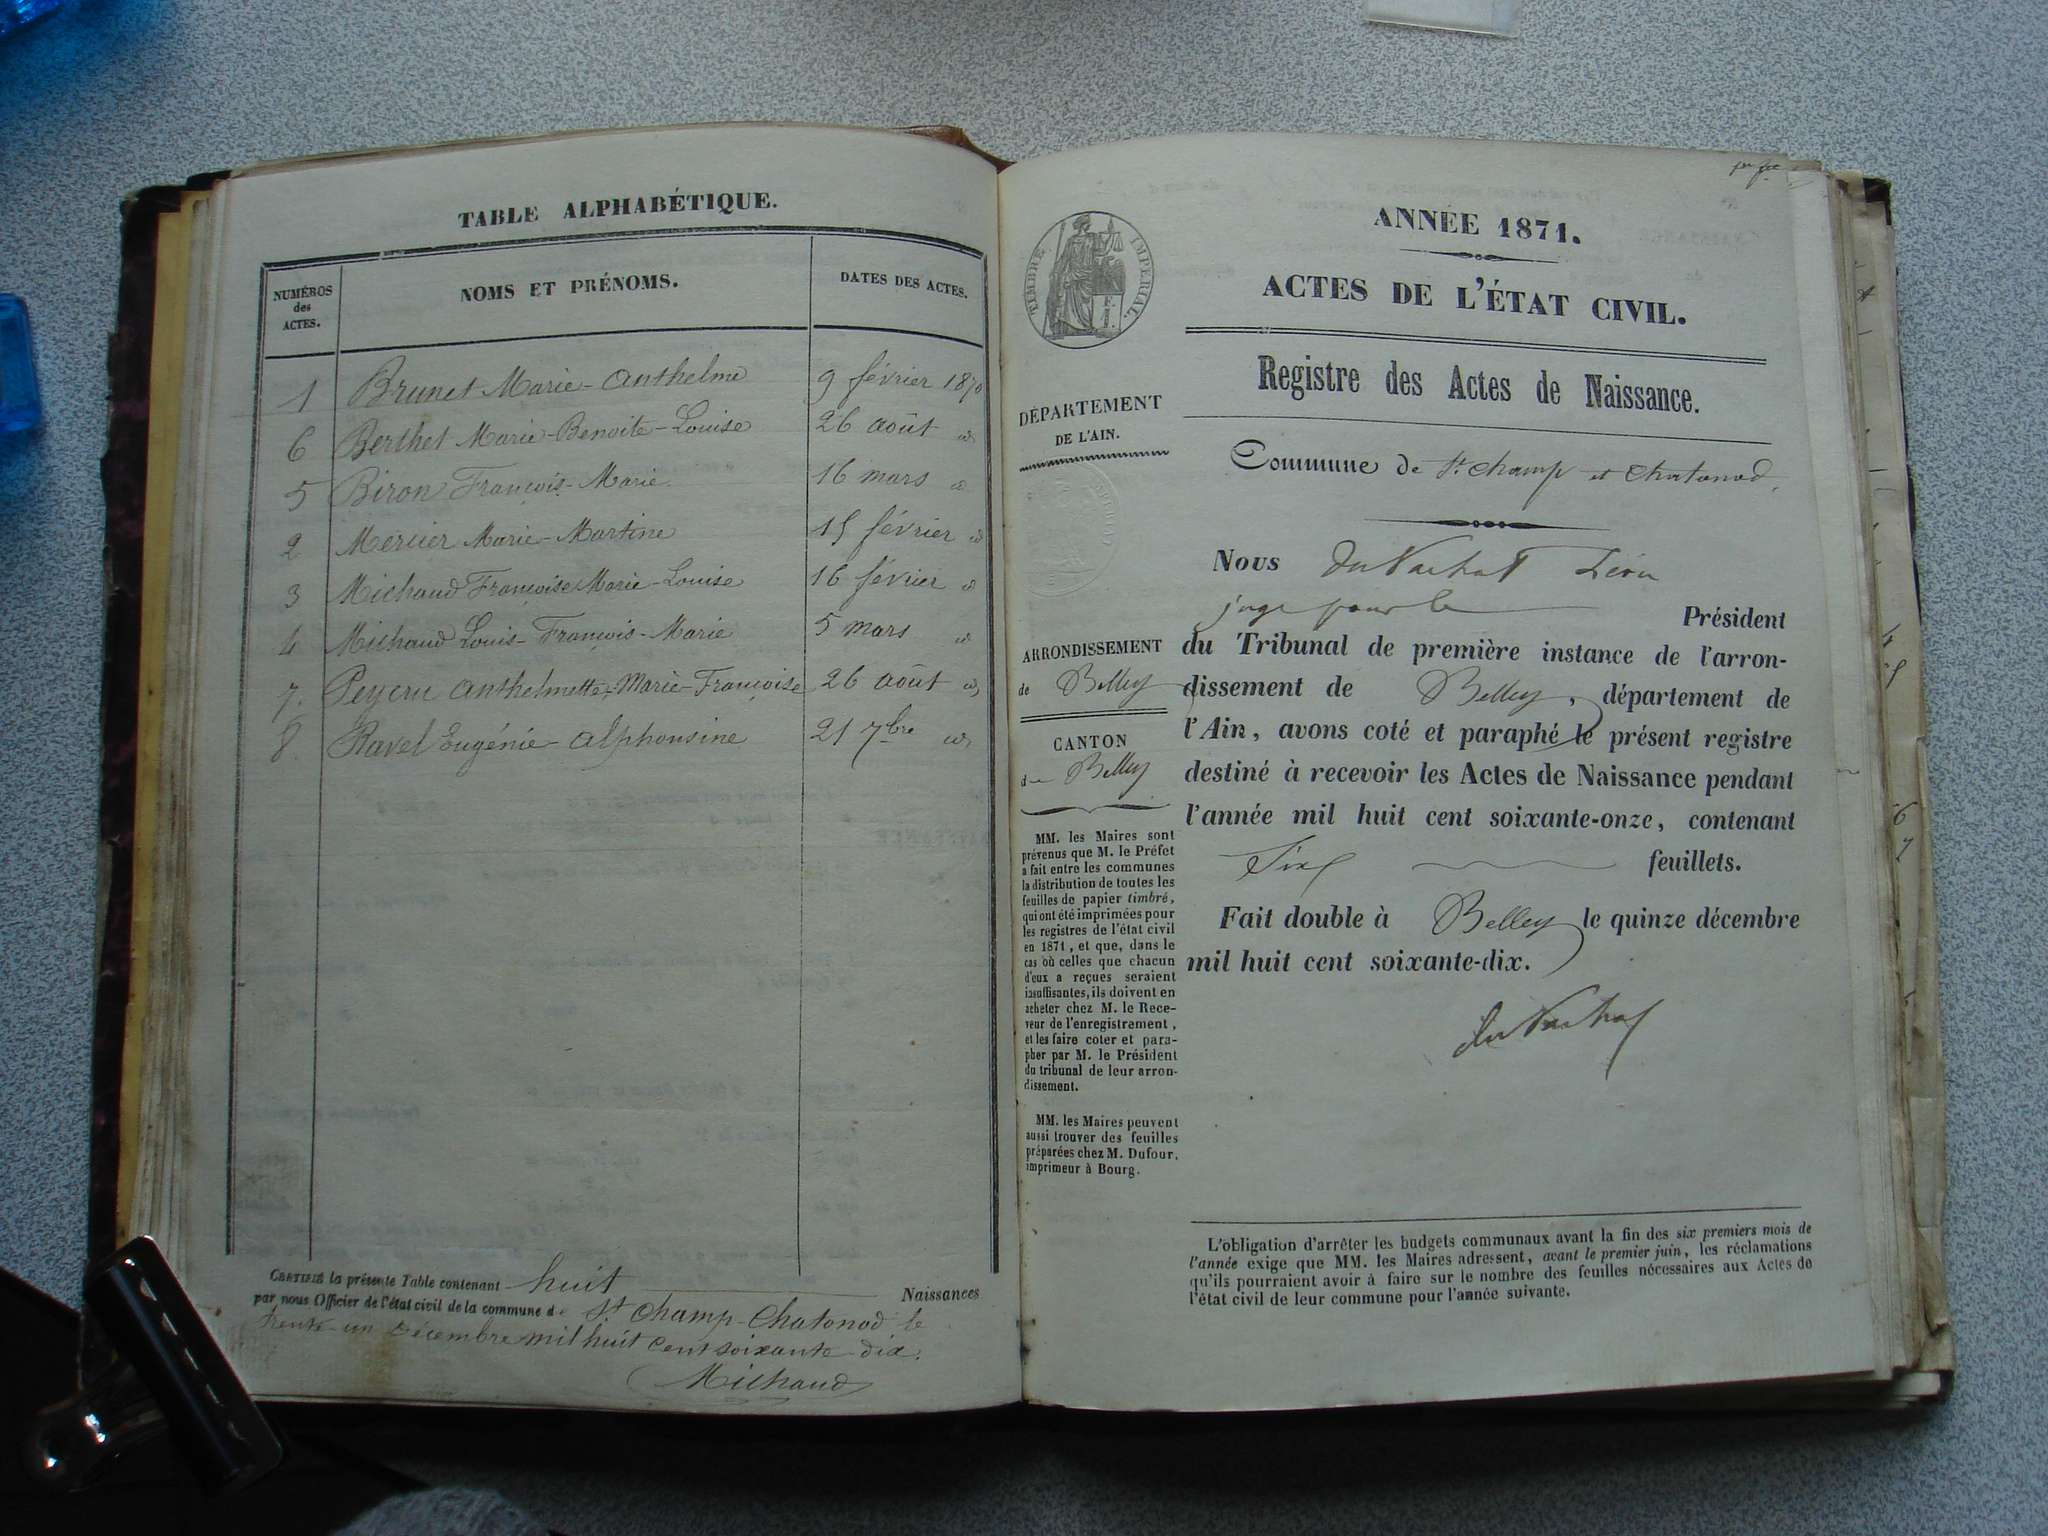 TABLE ALPHABÉTIQUE.
NUMÉROS des ACTES.
NOMS ET PRÉNOMS.
DATES DES ACTES.
1 Brunet Marie-Anthelme 9 février 1870
6 Berthet Marie-Benoite-Louise 26 août id
5 Biron François-Marie 16 mars id
2 Mercier Marie-Martine 15 février id
3 Michaud Françoise Marie-Louise 16 février id
4 Michaud Louis-François-Marie 5 mars id
7. Peycru Anthelmette-Marie-Françoise 26 août id
8. Ravel Eugénie-Alphonsine 21 7bre id
CERTIFIÉ la présente Table contenant huit Naissances
par nous Officier de l'état civil de la commune de St Champ-Chatonod le
trente-un Décembre mil huit cent soixante-dix.
Michaud
TIMBRE IMPÉRIAL.
DÉPARTEMENT
DE L'AIN.
ARRONDISSEMENT
de Belley
CANTON
de Belley
MM. les Maires sont
prévenus que M. le Préfet
a fait entre les communes
la distribution de toutes les
feuilles de papier timbré,
qui ont été imprimées pour
les registres de l'état civil
en 1871, et que, dans le
cas où celles que chacun
d'eux a reçues seraient
insuffisantes, ils doivent en
acheter chez M. le Rece-
veur de l'enregistrement,
et les faire coter et para-
pher par M. le Président
du tribunal de leur arron-
dissement.
MM. les Maires peuvent
aussi trouver des feuilles
préparées chez M. Dufour,
imprimeur à Bourg.
ANNÉE 1871.
ACTES DE L'ÉTAT CIVIL.
Registre des Actes de Naissance.
Commune de St champ et Chatonod.
Nous Du Vachat Léon
juge pour le Président
du Tribunal de première instance de l'arron-
dissement de Belley, département de
l'Ain, avons coté et paraphé le présent registre
destiné à recevoir les Actes de Naissance pendant
l'année mil huit cent soixante-onze, contenant
Six feuillets.
Fait double à Belley le quinze décembre
mil huit cent soixante-dix.
du Vachat
L'obligation d'arrêter les budgets communaux avant la fin des six premiers mois de
l'année exige que MM. les Maires adressent, avant le premier juin, les réclamations
qu'ils pourraient avoir à faire sur le nombre des feuilles nécessaires aux Actes de
l'état civil de leur commune pour l'année suivante.